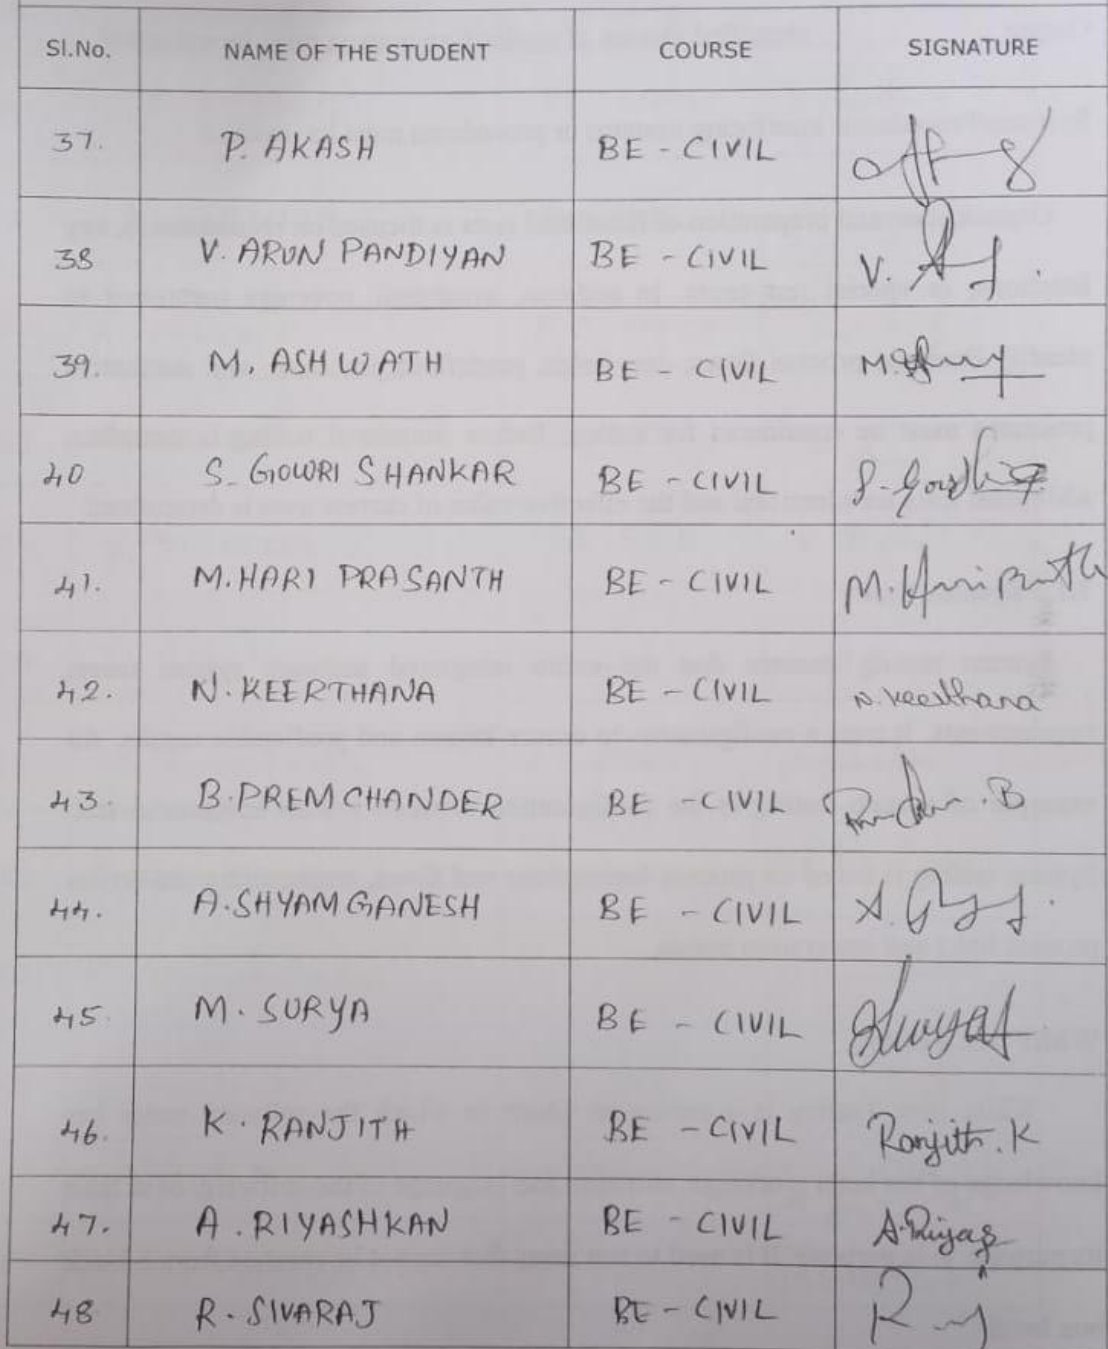 Sl.No. NAME OF THE STUDENT COURSE SIGNATURE
37. P. AKASH BE - CIVIL
38 V. ARUN PANDIYAN BE - CIVIL V.
39. M. ASHWATH BE - CIVIL
40 S. GOWRI SHANKAR BE - CIVIL
41. M. HARI PRASANTH BE - CIVIL
42. N. KEERTHANA BE - CIVIL N. Keerthana
43. B. PREMCHANDER BE - CIVIL
44. A. SHYAM GANESH BE - CIVIL
45. M. SURYA BE - CIVIL
46. K. RANJITH BE - CIVIL Ranjith. K
47. A. RIYASHKAN BE - CIVIL
48 R. SIVARAJ BE - CIVIL